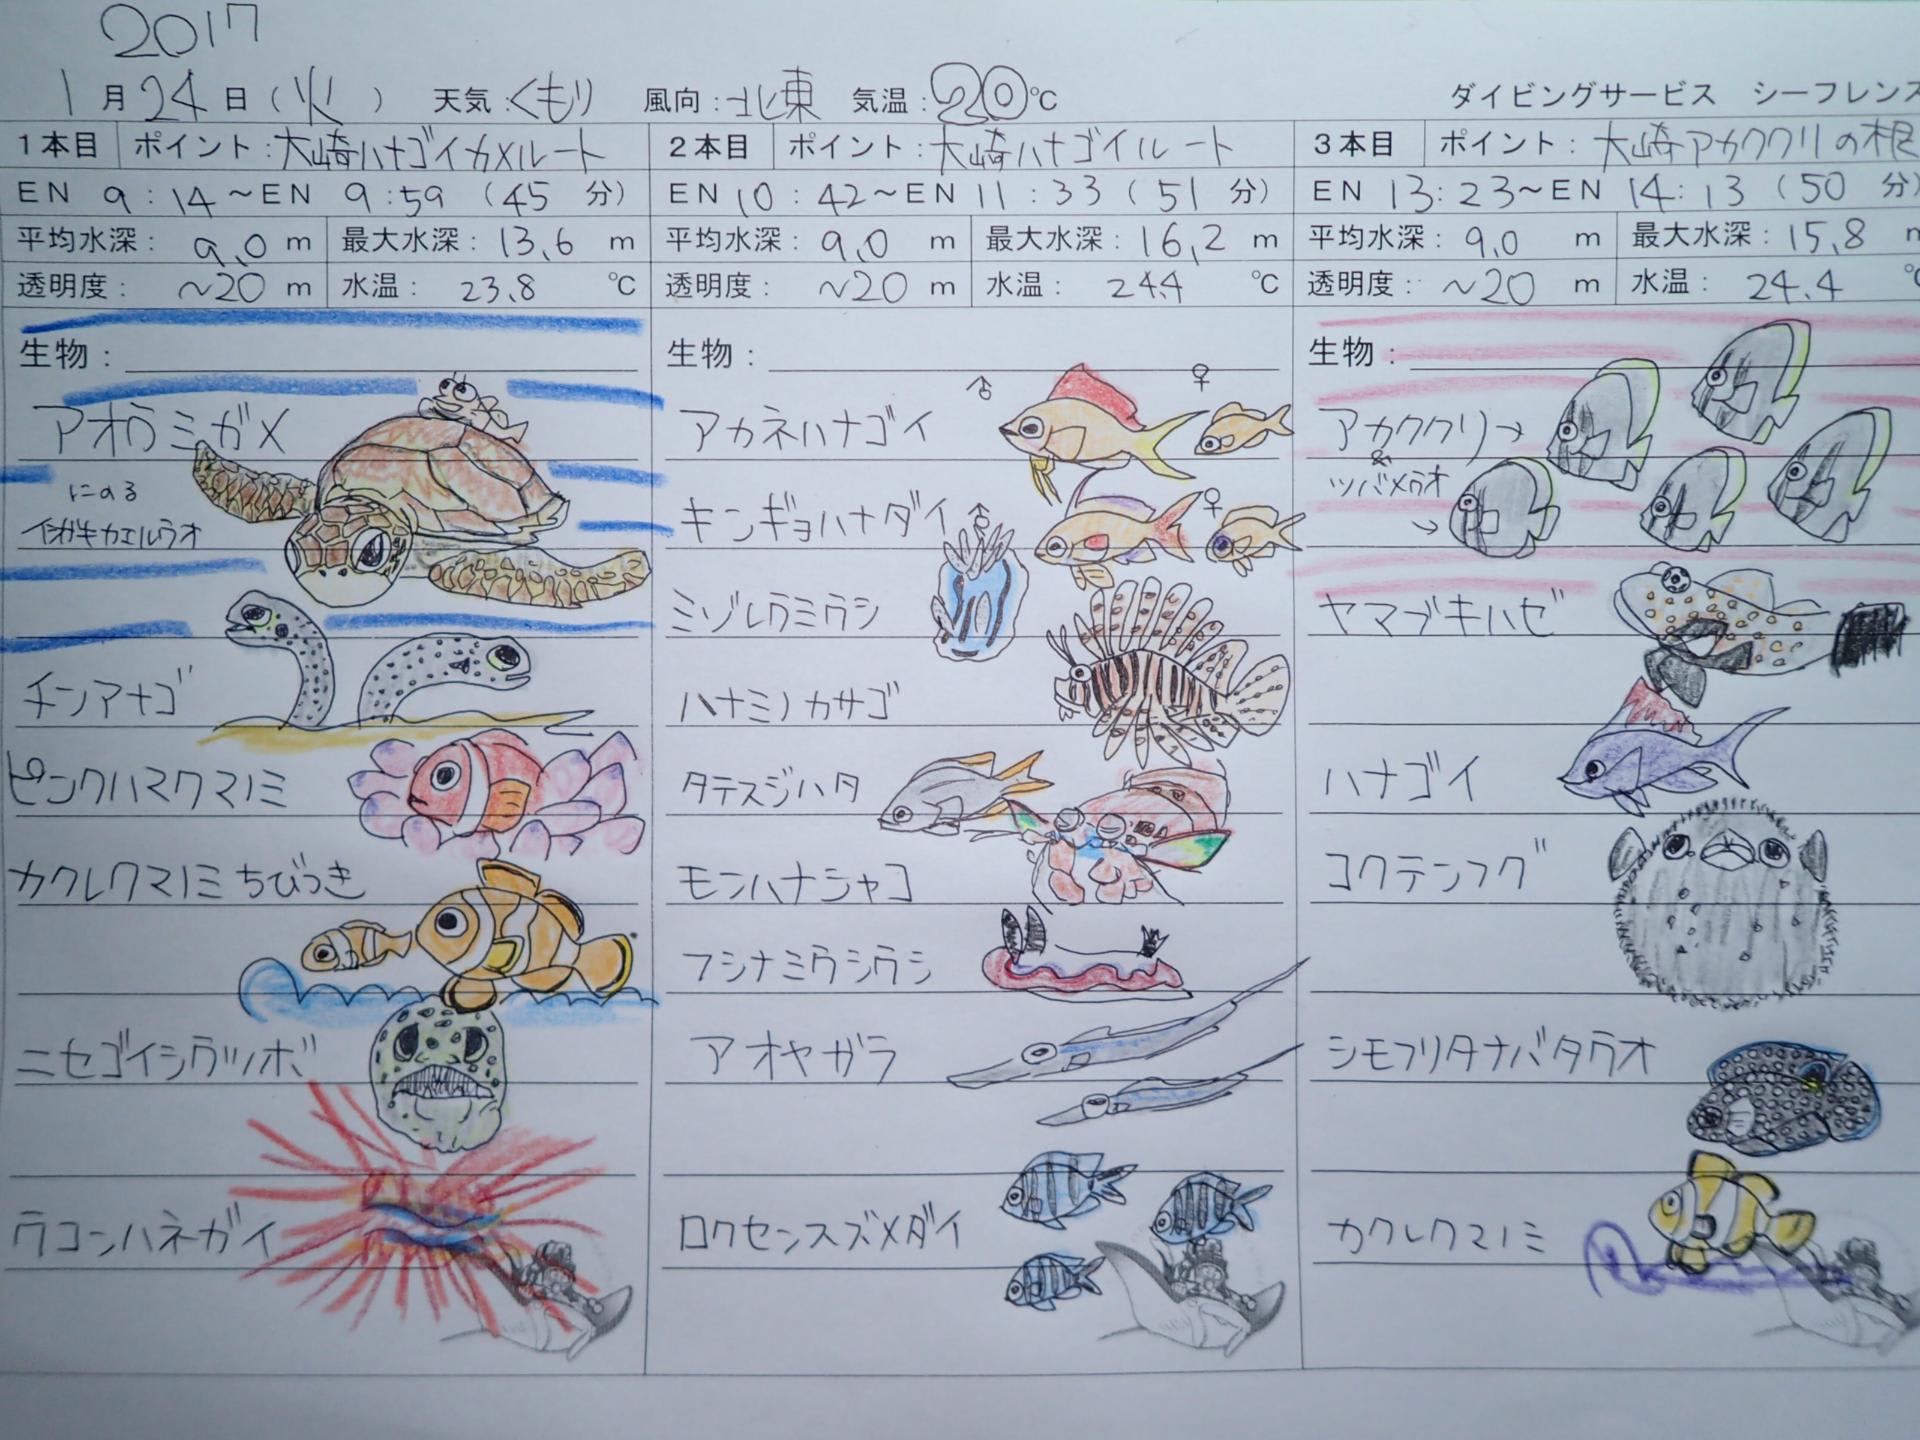 2017
1月24日(火) 天気:くもり 風向:北東 気温:20℃ ダイビングサービス シーフレンズ
1本目 ポイント:大崎ハナゴイカメルート
EN 9:14〜EN 9:59(45分)
平均水深:9.0m 最大水深:13.6m
透明度:~20m 水温:23.8℃
生物:
アオウミガメ
にのる
イシガキカエルウオ
チンアナゴ
ピンクハマクマノミ
カクレクマノミちびつき
ニセゴイシウツボ
ウコンハネガイ
2本目 ポイント:大崎ハナゴイルート
EN 10:42〜EN 11:33(51分)
平均水深:9.0m 最大水深:16.2m
透明度:~20m 水温:24.4℃
生物:
アカネハナゴイ ♂ ♀
キンギョハナダイ ♂ ♀
ミゾレウミウシ
ハナミノカサゴ
タテスジハタ
モンハナシャコ
フシナミウシウシ
アオヤガラ
ロクセンスズメダイ
3本目 ポイント:大崎アカククリの根
EN 13:23〜EN 14:13(50分)
平均水深:9.0m 最大水深:15.8m
透明度:~20m 水温:24.4℃
生物:
アカククリ→
&
ツバメウオ
→
ヤマブキハゼ
ハナゴイ
コクテンフグ
シモフリタナバタウオ
カクレクマノミ